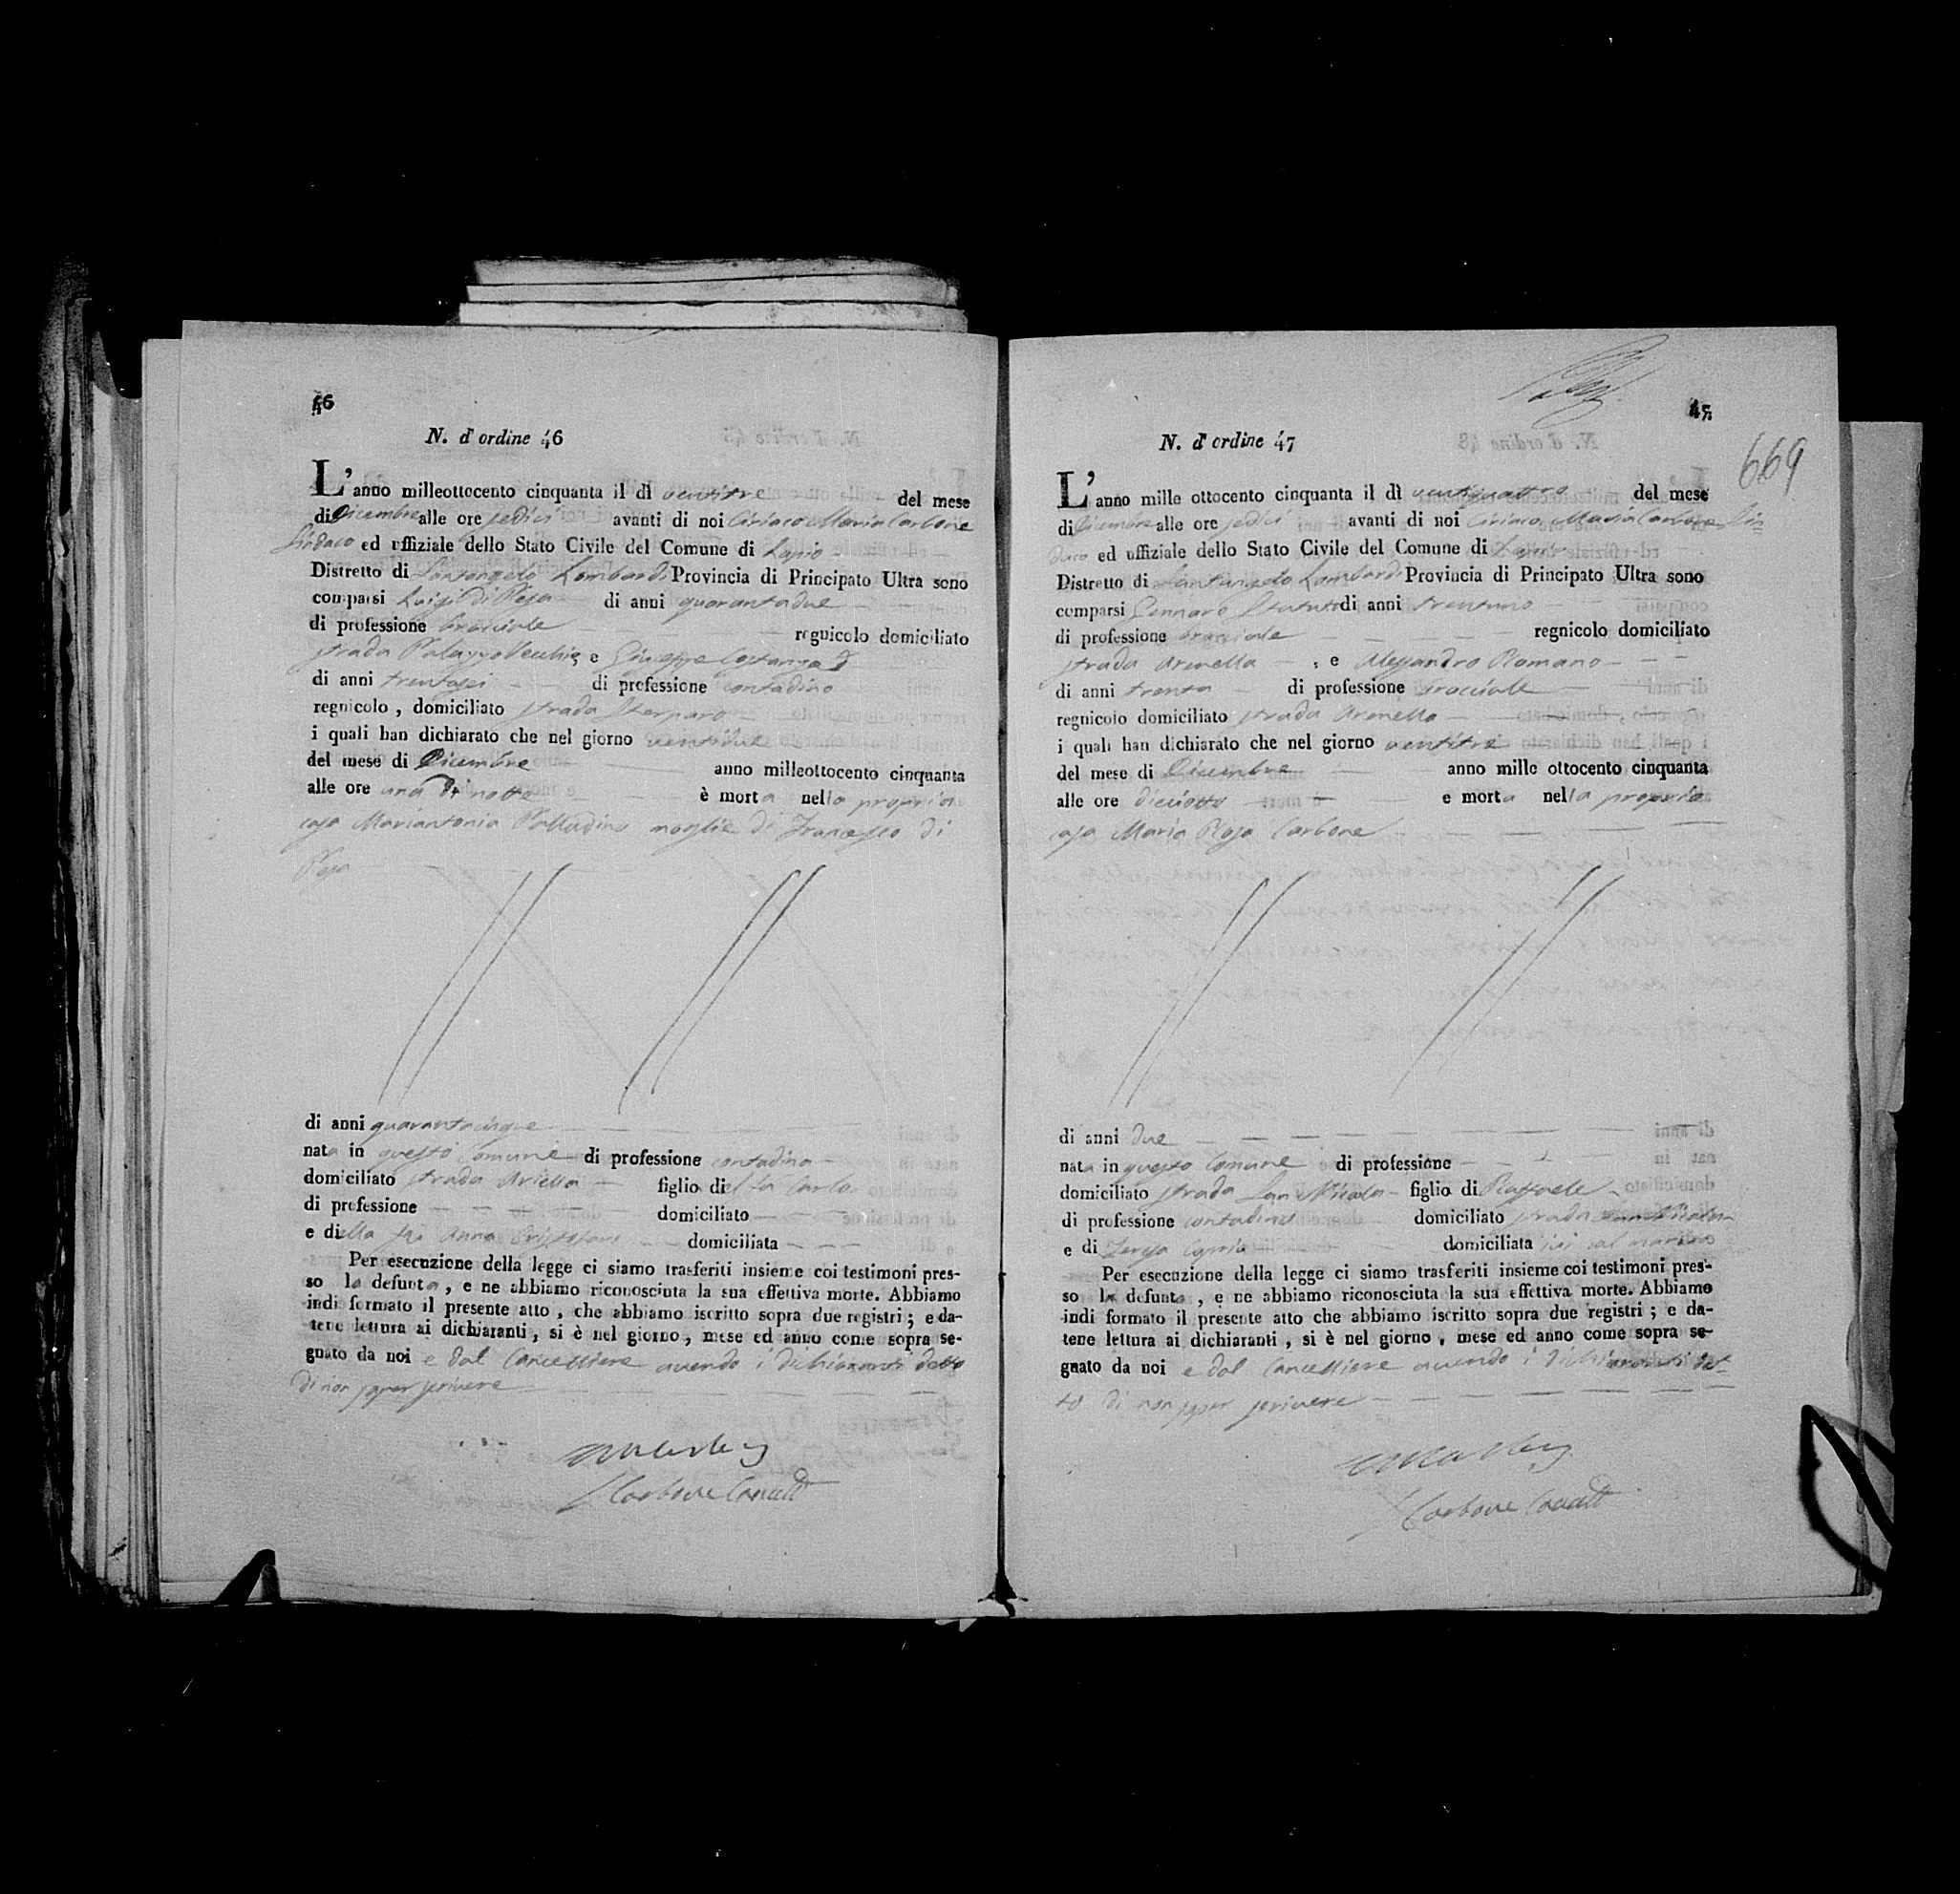 46
N. d'ordine 46
L'anno milleottocento cinquanta il dì ventitre del mese
di Dicembre alle ore sedici avanti di noi Ciriaco Maria Carbone
Sindaco ed uffiziale dello Stato Civile del Comune di Lapio
Distretto di Santangelo Lombardi Provincia di Principato Ultra sono
comparsi Luigi di Rosa di anni quarantadue
di professione bracciale regnicolo domiciliato
strada Palazzo Vecchio, e Giuseppe Costanza
di anni trentasei di professione contadino
regnicolo, domiciliato strada Sterparo
i quali han dichiarato che nel giorno ventidue
del mese di Dicembre anno milleottocento cinquanta
alle ore una di notte è morta nella propria
casa Mariantonia Palladino moglie di Francesco di
Rosa
di anni quarantacinque
nata in questo Comune di professione contadina
domiciliato strada Ariella figlia del fu Carlo
di professione domiciliato
e della fu Anna domiciliata
Per esecuzione della legge ci siamo trasferiti insieme coi testimoni pres-
so la defunta, e ne abbiamo riconosciuta la sua effettiva morte. Abbiamo
indi formato il presente atto, che abbiamo iscritto sopra due registri; e da-
tene lettura ai dichiaranti, si è nel giorno, mese ed anno come sopra se-
gnato da noi e dal Cancelliere avendo i dichiaranti detto
di non saper scrivere
Carbone Cancell
47
669
N. d'ordine 47
L'anno mille ottocento cinquanta il dì ventiquattro del mese
di Dicembre alle ore sedici avanti di noi Ciriaco Maria Carbone Sin=
daco ed uffiziale dello Stato Civile del Comune di Lapio
Distretto di Santangelo Lombardi Provincia di Principato Ultra sono
comparsi Gennaro Statuto di anni trentuno
di professione bracciale regnicolo domiciliato
strada Arenella, e Alessandro Romano
di anni trenta di professione bracciale
regnicolo domiciliato strada Arenella
i quali han dichiarato che nel giorno ventitre
del mese di Dicembre anno mille ottocento cinquanta
alle ore diciotto e morta nella propria
casa Maria Rosa Carbone
di anni due
nata in questo Comune di professione
domiciliato strada San Nicola figlia di Raffaele
di professione contadino domiciliato strada San Nicola
e di Teresa domiciliata ivi col marito
Per esecuzione della legge ci siamo trasferiti insieme coi testimoni pres-
so la defunta, e ne abbiamo riconosciuta la sua effettiva morte. Abbiamo
indi formato il presente atto che abbiamo iscritto sopra due registri; e da-
tene lettura ai dichiaranti, si è nel giorno, mese ed anno come sopra se-
gnato da noi e dal Cancelliere avendo i dichiaranti det=
to di non saper scrivere
Carbone Cancell